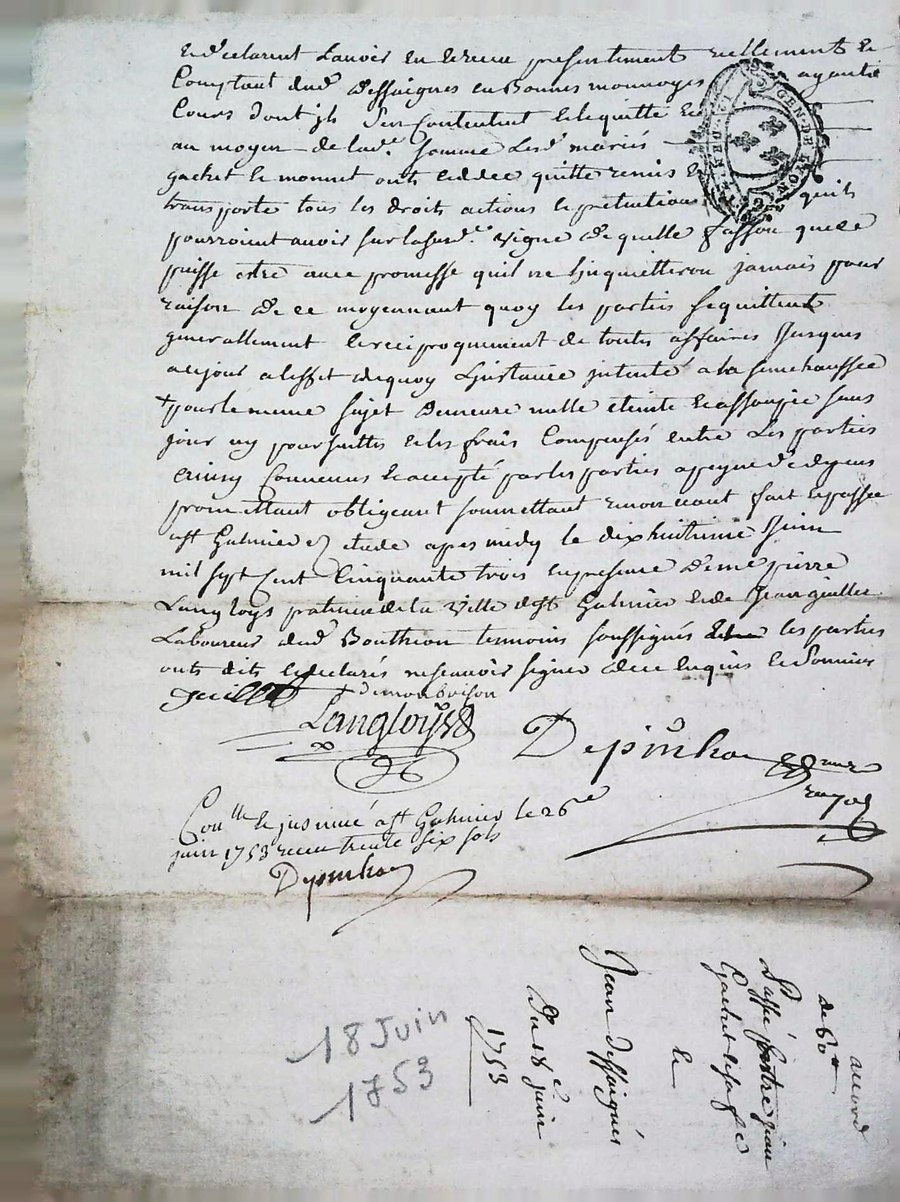 et declarent l'avoir eu et receu presentement reellement et
comptant dud. deffaignes en bonnes monnoyes ayante
cours dont ils sen contentent et le quitte et
au moyen de lad.e somme les d. mariés
gachet et monnet onts cedée quitte remis et
transporte tous les droits actions et pretentions quils
pourroient avoir sur lasusd.e vigne de quelle fasson que ce
puisse estre avec promesse quil ne linquietteron jamais pour
raison de ce moyennant quoy les parties se quittent
generallement et reciproquement de toutes affaires jusques
au jour a l'effet de quoy l'instance intenté a la senechaussée
pour le meme sujet demeure nulle eteinte et assoupie sans
jour ny poursuittes et les frais compensés entre les parties
ainsy convenus et accepté par les parties a peyne de depens
promettant obligeant soumettant renoncant fait et passé
a st Galmier etude apres midy le dix huitieme juin
mil sept cent cinquante trois en presence de me pierre
Langloys de la ville de st Galmier et de Jean guillet
Laboureur dud. Bouthéon temoins soussignés les parties
onts dits et declarés ne scavoir signer de ce enquis et sommés
guillet
Langloys
GEN. DE LYON
Depinhac
Conlle et insinué a st Galmier le 26e
juin 1753 receu trente six sols
Depinhac
accord
de 60
Passé entre jean
Gachet et sa fe
et
Jean deffaignes
Du 18e juin
1753
18 Juin
1753